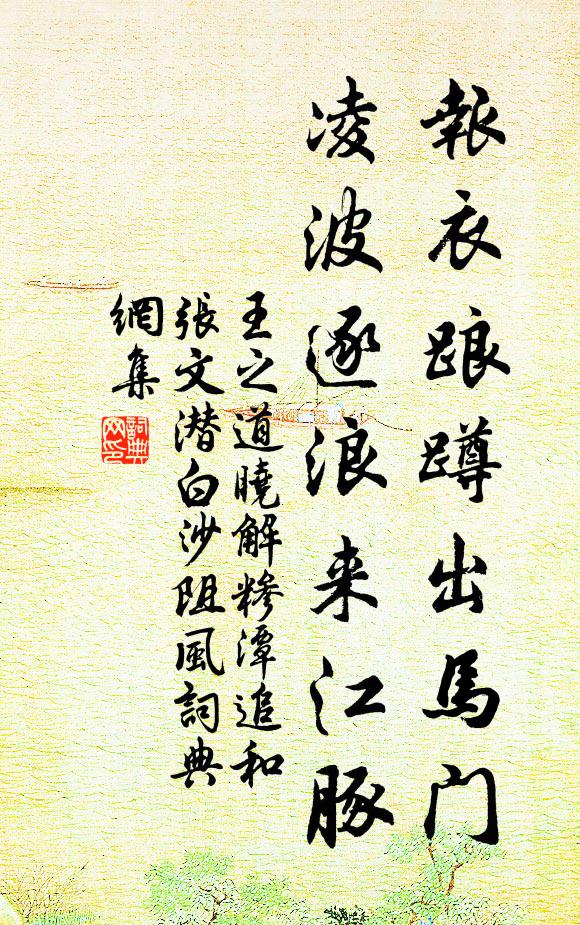 報衣踉蹲出馬門
凌波逐浪来江豚
王之道曉解糝潭追和
張文潜白沙阻風詞典
網集
詞典
网印